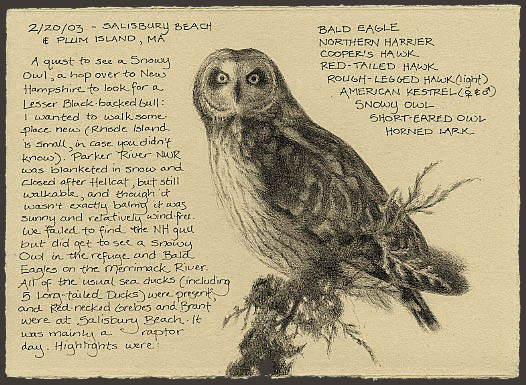 2/20/03 - SALISBURY BEACH
& PLUM ISLAND, MA
A quest to see a Snowy
Owl, a hop over to New
Hampshire to look for a
Lesser Black-backed Gull:
I wanted to walk some-
place new (Rhode Island
is small, in case you didn't
know). Parker River NWR
was blanketed in snow and
closed after Hellcat, but still
walkable, and though it
wasn't exactly balmy it was
sunny and relatively wind-free.
We failed to find the NH gull
but did get to see a Snowy
Owl in the refuge and Bald
Eagles on the Merrimack River.
All of the usual sea ducks (including
5 Long-tailed Ducks) were present,
and Red-necked Grebes and Brant
were at Salisbury Beach. It
was mainly a raptor
day. Highlights were:
BALD EAGLE
NORTHERN HARRIER
COOPER'S HAWK
RED-TAILED HAWK
ROUGH-LEGGED HAWK (light)
AMERICAN KESTREL (♀&♂)
SNOWY OWL
SHORT-EARED OWL
HORNED LARK